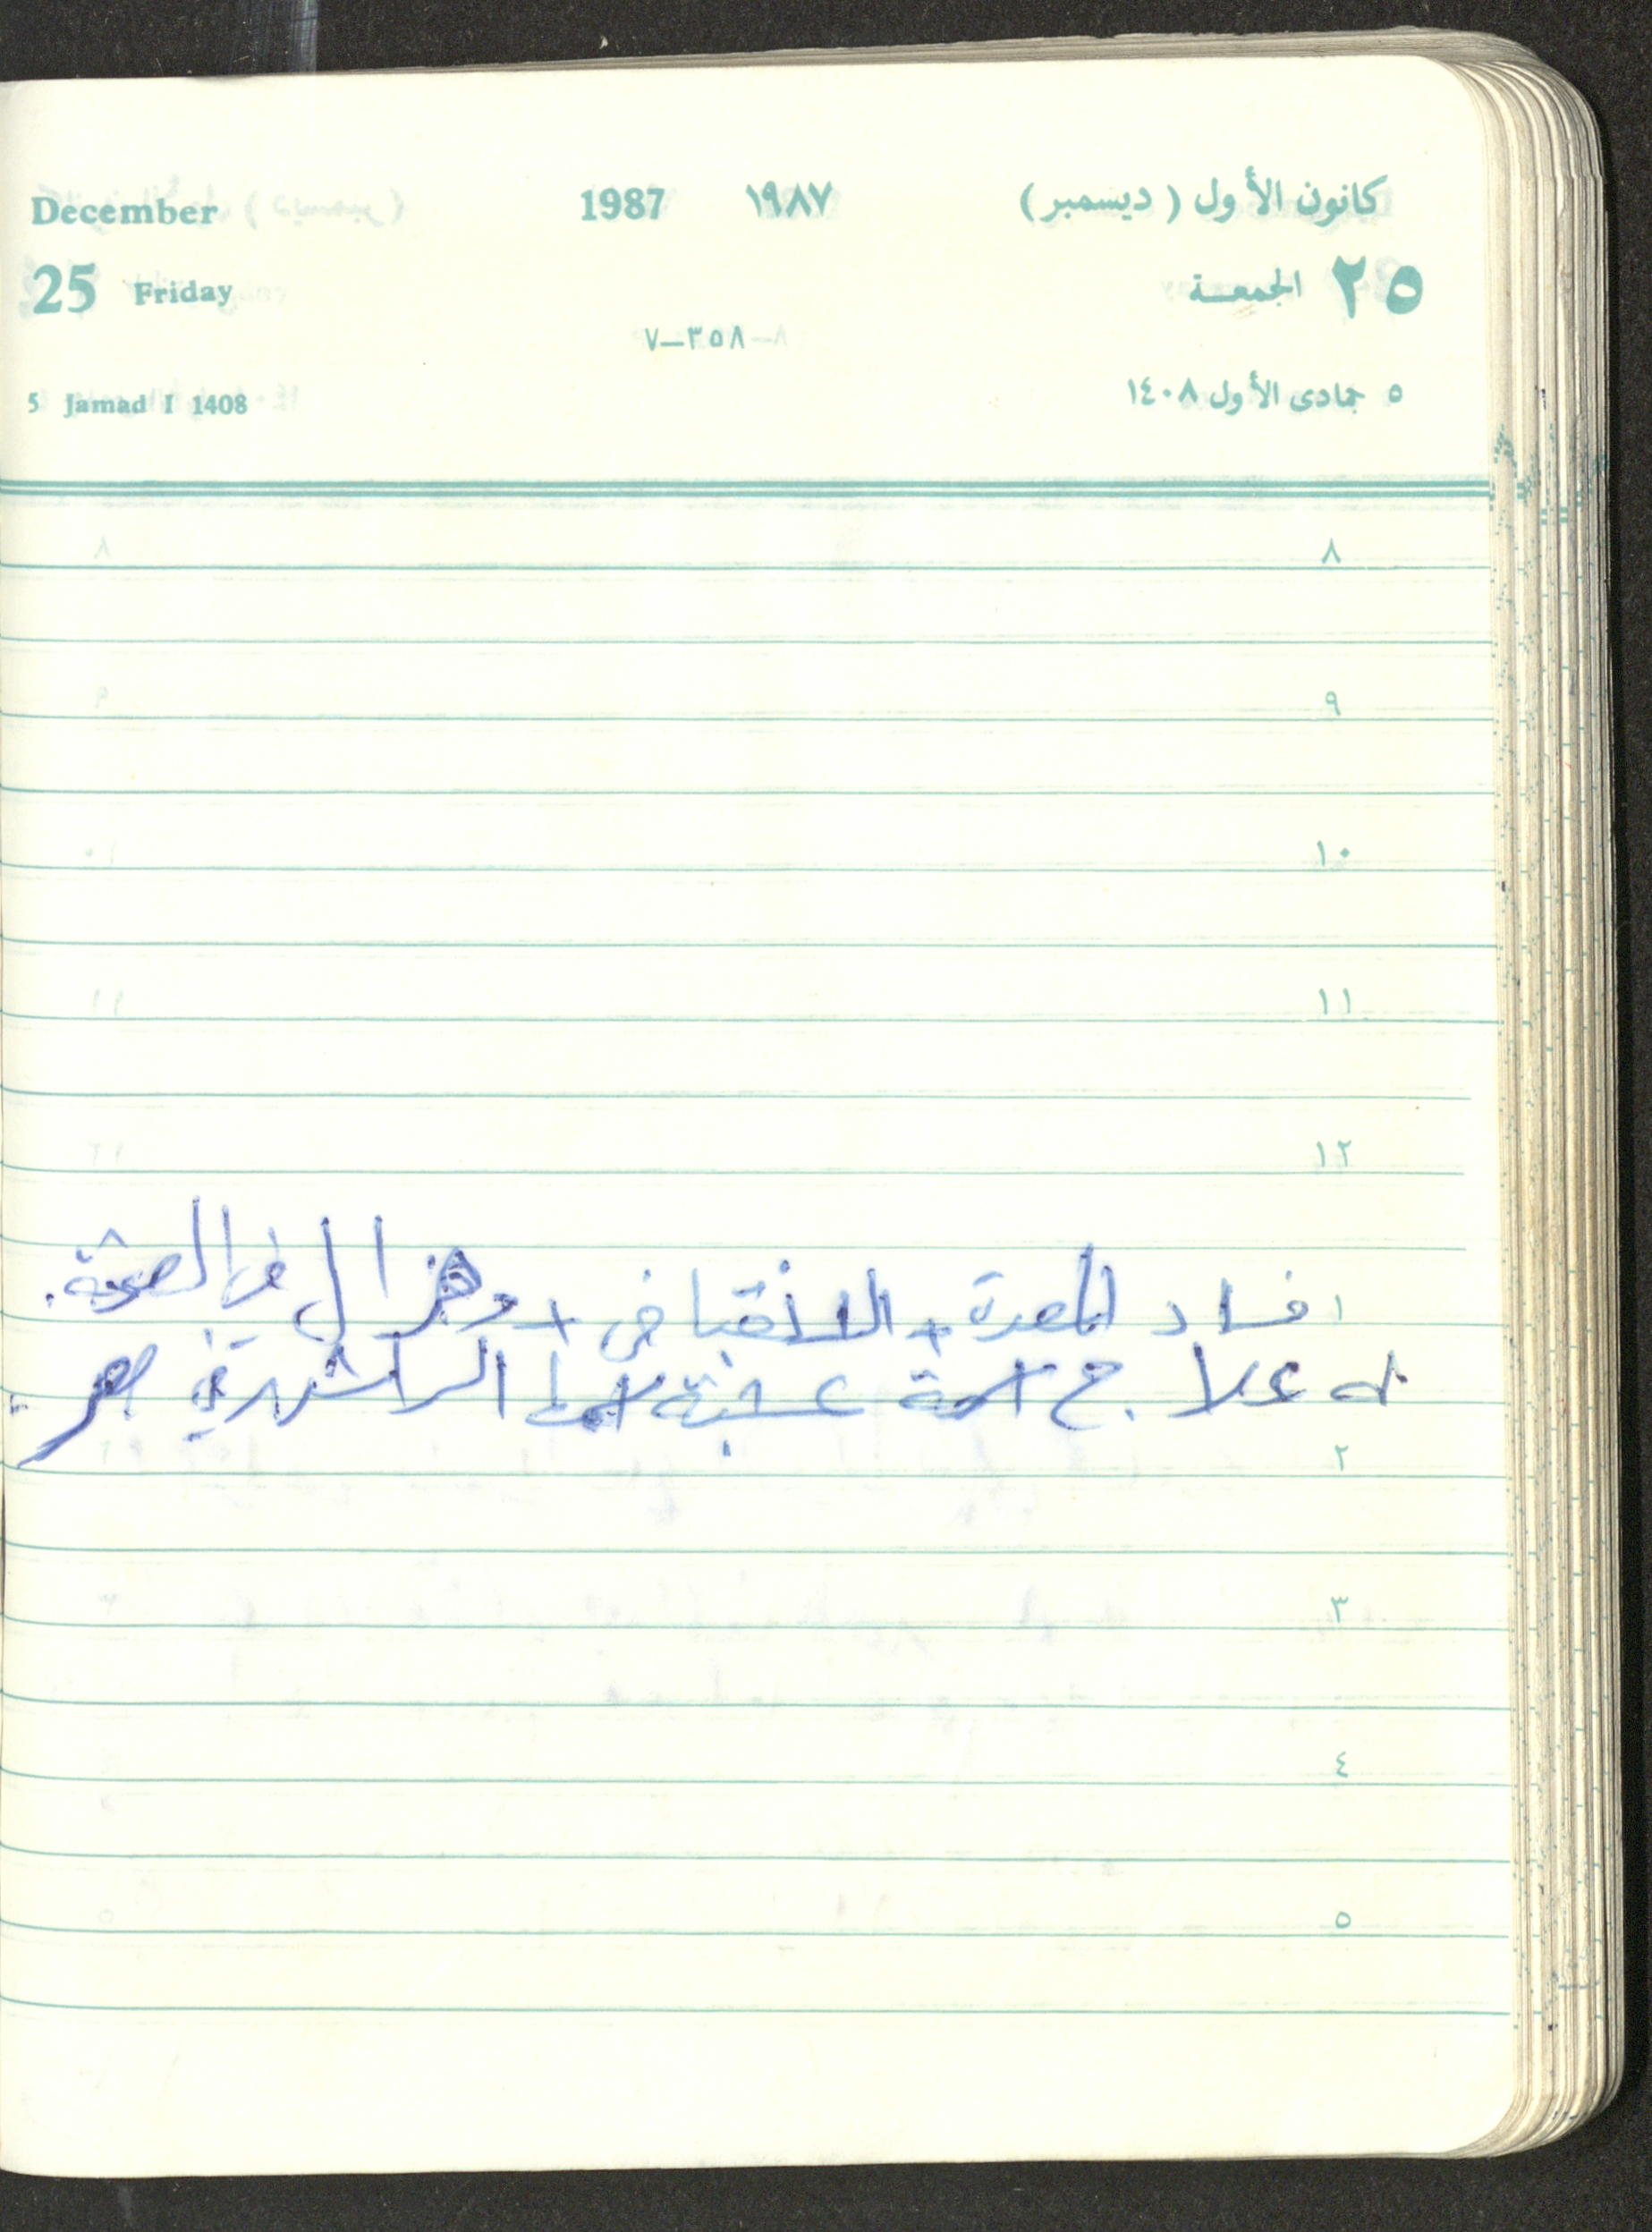 December 1987 ١٩٨٧ كانون الأول ( ديسمبر )
25 Friday ٢٥ الجمعة
٧–٣٥٨
5 Jamad I 1408 ٥ جمادى الأول ١٤٠٨
٨
٩
١٠
١١
١٢
١ افساد المعدة + الانقباض + وهزال في الصحة.
له علاج
٢
٣
٤
٥